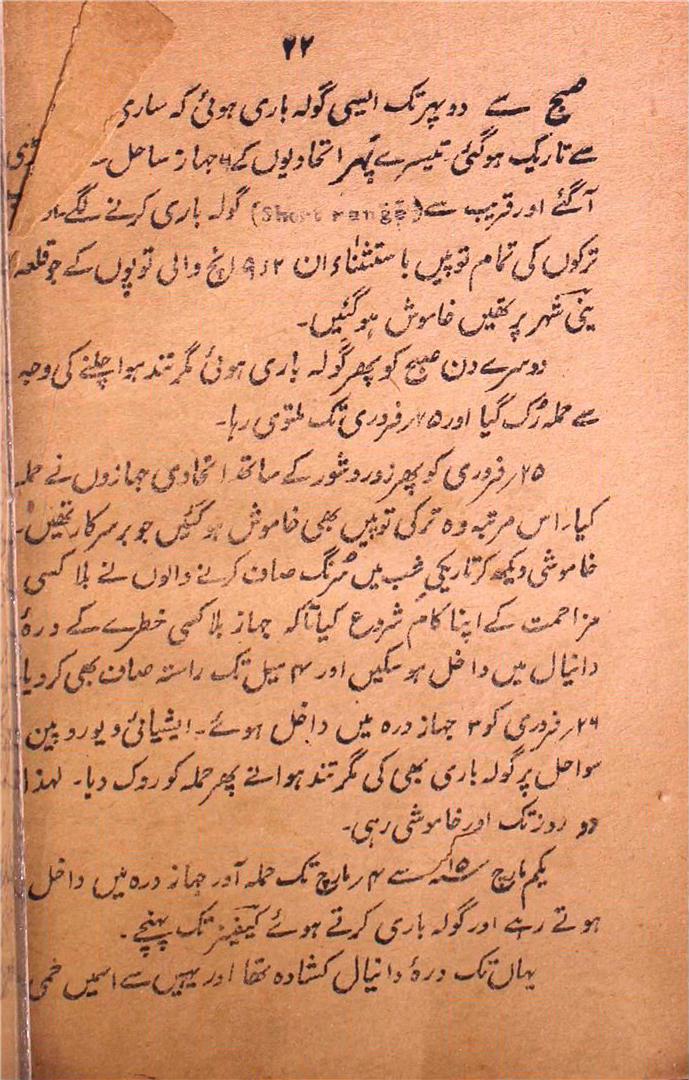 ۲۲
صبح سے دوپہر تک ایسی گولہ باری ہوئی کہ ساری
سے تاریک ہوگئی تیسرے پہر اتحادیوں کے ۶ جہاز ساحل
آگئے اور قریب سے (Short range) گولہ باری کرنے لگے۔
ترکوں کی تمام توپیں باستثناء ان ۹٫۲ انچ والی توپوں کے جو قلعہ
ینی شہر پر تھیں خاموش ہوگئیں۔
دوسرے دن صبح کو پھر گولہ باری ہوئی مگر تند ہوا چلنے کی وجہ
سے حملہ رُک گیا اور ۲۵ر فروری تک ملتوی رہا۔
۲۵ر فروری کو پھر زور و شور کے ساتھ اتحادی جہازوں نے حملہ
کیا۔ اس مرتبہ وہ ترکی توپیں بھی خاموش ہوگئیں جو برسرکار تھیں۔
خاموشی دیکھ کر تاریکیِ شب میں سُرنگ صاف کرنے والوں نے بلا کسی
مزاحمت کے اپنا کام شروع کیا تاکہ جہاز بلا کسی خطرے کے درۂ
دانیال میں داخل ہو سکیں اور ۴ میل تک راستہ صاف بھی کردیا
۲۶ر فروری کو ۳ جہاز درہ میں داخل ہوئے۔ ایشیائی و یوروپین
سواحل پر گولہ باری بھی کی مگر تند ہوا نے پھر حملہ کو روک دیا۔ لہذا
دو روز تک اور خاموشی رہی۔
یکم مارچ ۱۵ء سے ۴ر مارچ تک حملہ آور جہاز درہ میں داخل
ہوتے رہے اور گولہ باری کرتے ہوئے کیفیز تک پہنچے۔
یہاں تک درۂ دانیال کشادہ تھا اور یہیں سے اسمیں خمی